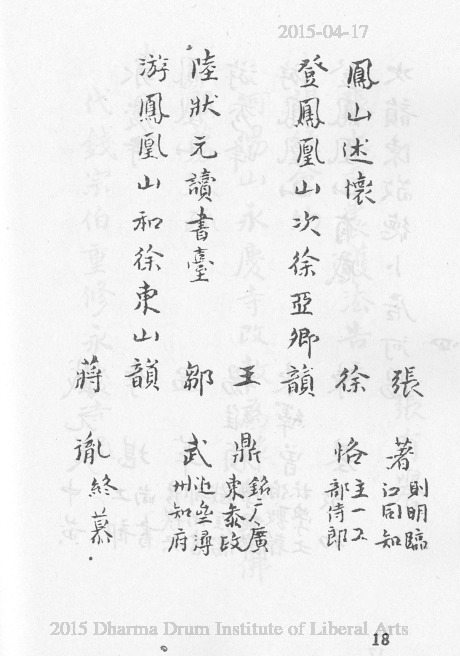 2015-04-17
張 著 則明臨江同知
鳳山述懷 徐 恪 主一工部侍郎
登鳳凰山次徐亞卿韻
王 鼎 廣東叅政
陸狀元讀書臺 鄒 武 潯州知府
游鳳凰山和徐東山韻
蔣 胤 終慕
2015 Dharma Drum Institute of Liberal Arts
18